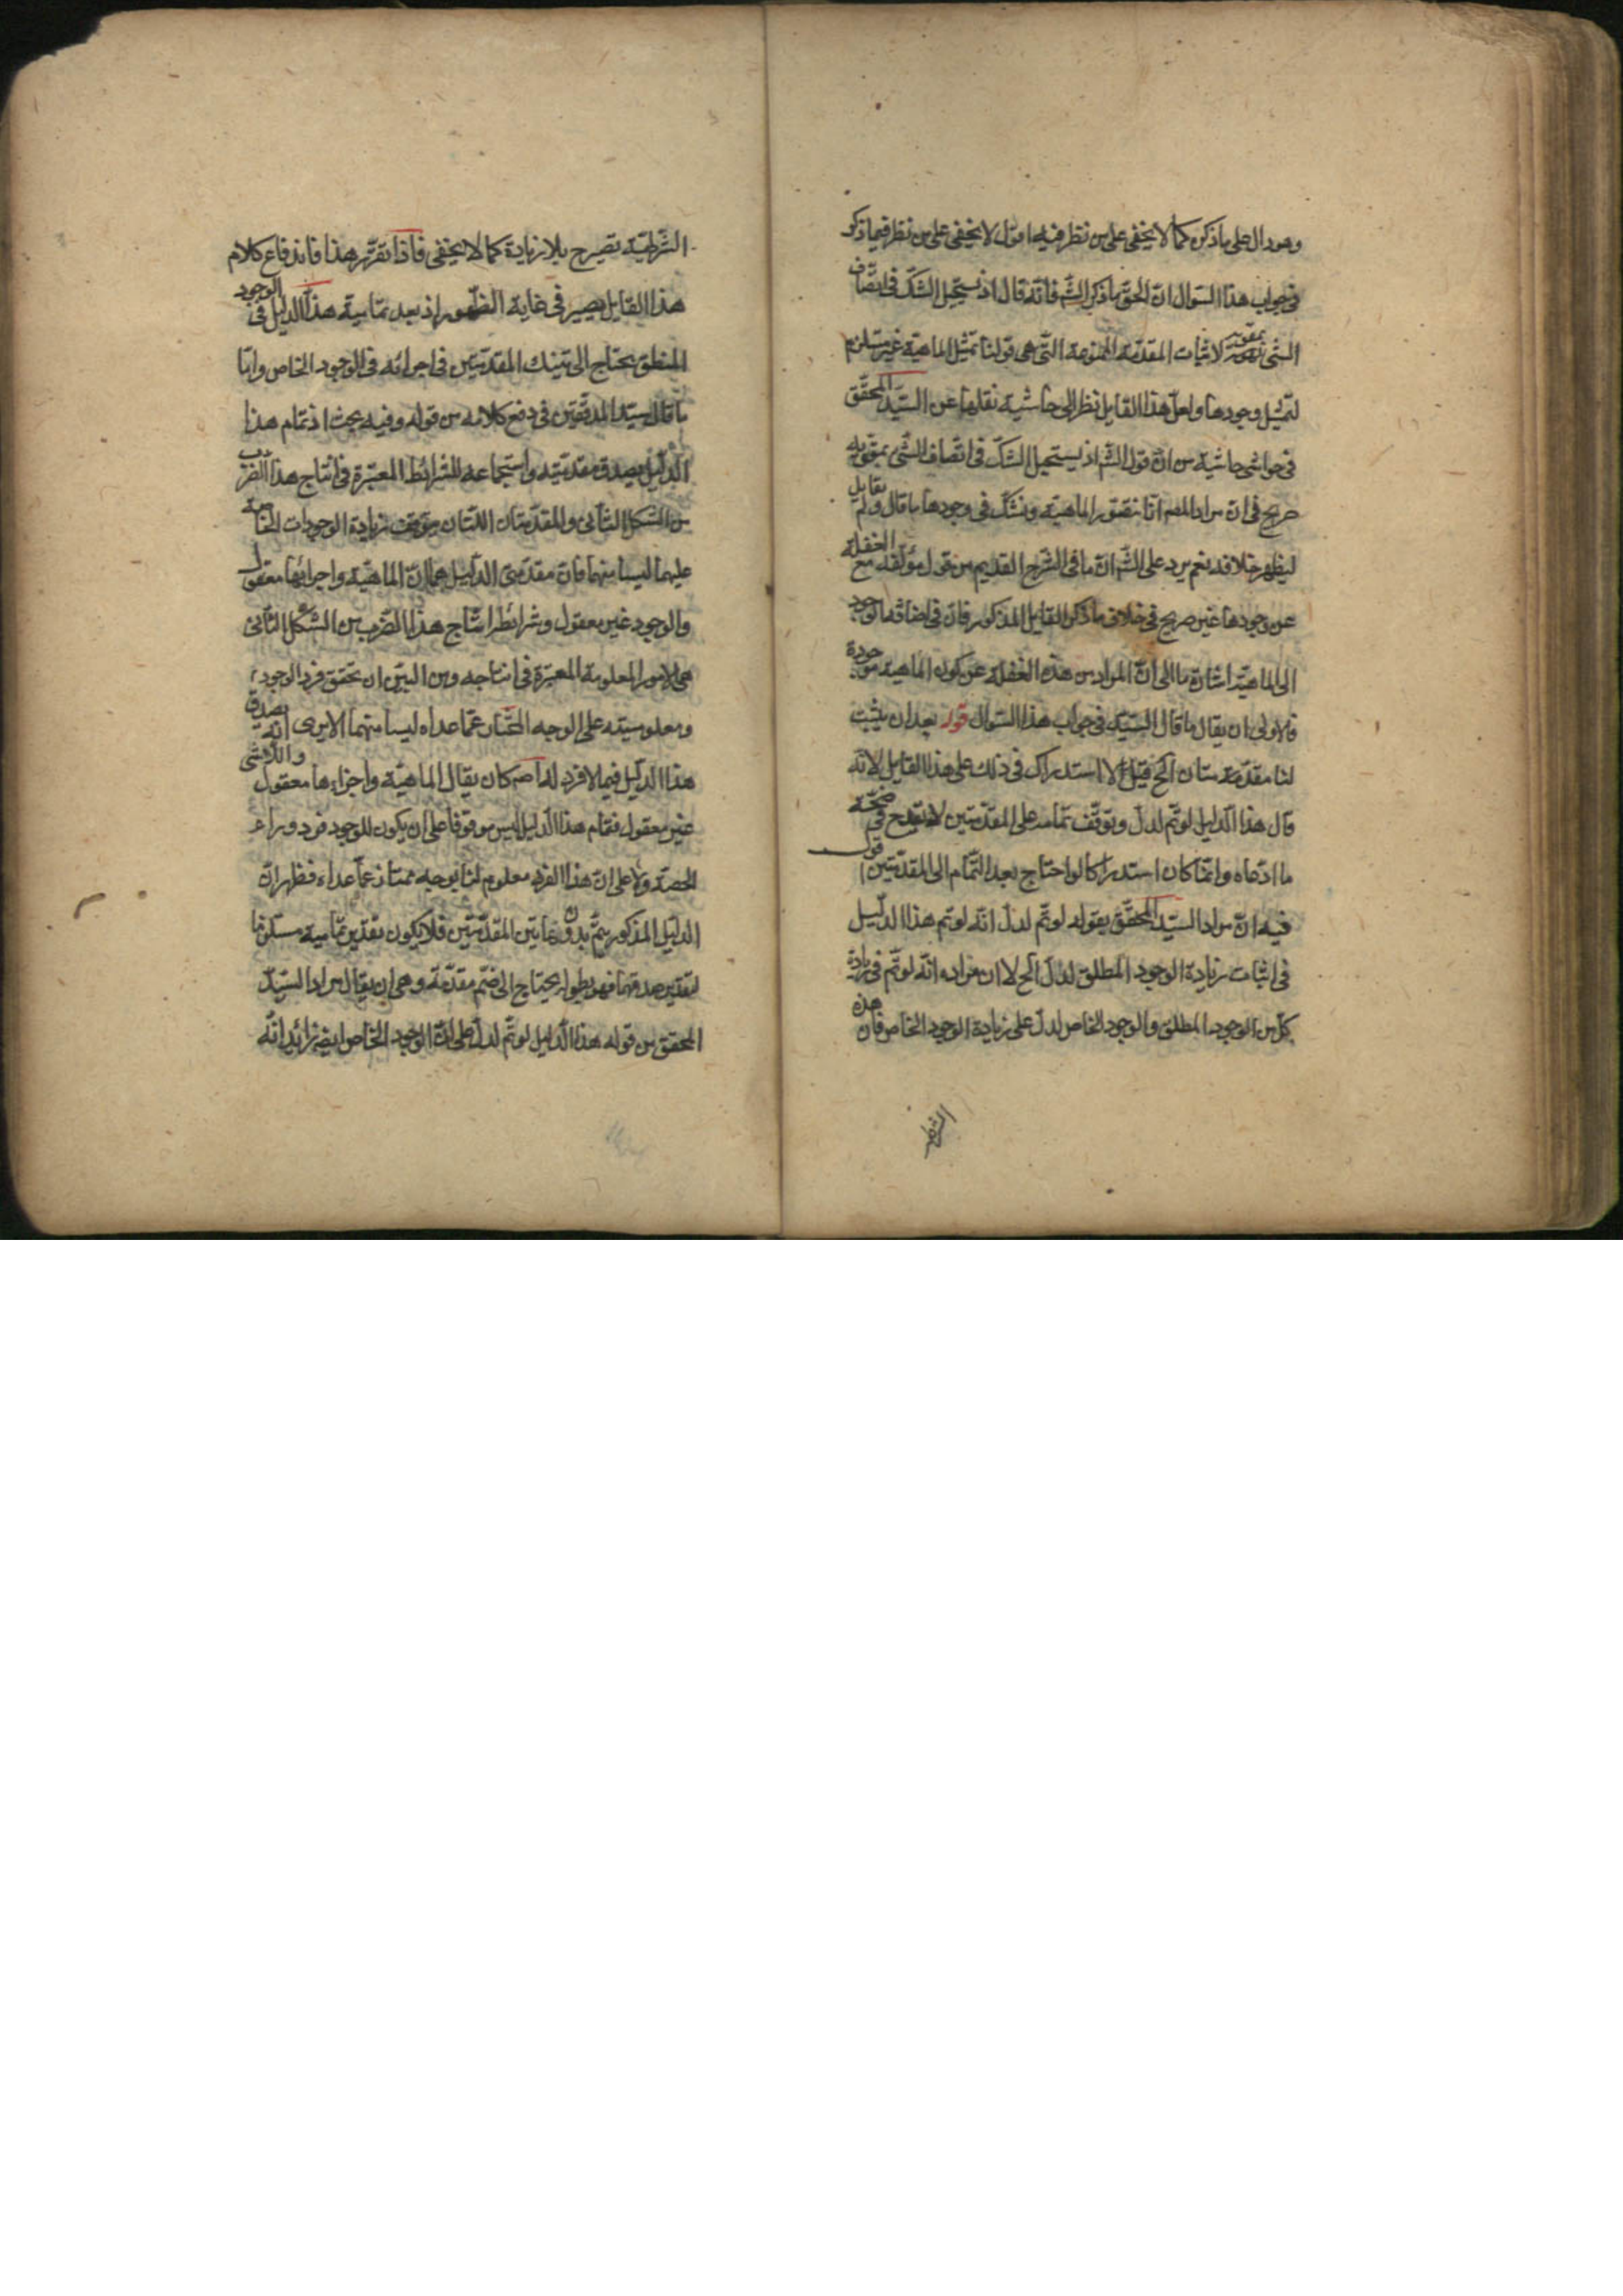 وهو دال على ما ذكره كما لا يخفى على من نظر فيه اقول لا يخفى على من نظر فيما ذكر
فى جواب هذا السوال ان الحق ما ذكره الشم فانه قال اذ يستحيل الشك فى اتصاف
الشئ بمقومه لاثبات المقدمة الممنوعة التى هى قولنا تمثل الماهية غير مستلزم
لتمثيل وجودها ولعل هذا القايل نظر الى حاشية نقلها عن السيد المحقق
فى حواشى حاشيه من ان قول الشم اذ يستحيل الشك فى اتصاف الشئ بمقومه
صريح فى ان مراد المصم انا نتصور الماهية ونشك فى وجودها ما قال ولم يقابل
ليظهر خلافه نعم يرد على الشم ان ما فى الشرح القديم من قول مؤلفه مع الغفلة
عن وجودها غير صريح فى خلاف ما ذكره القايل المذكور فان فى اضافه الوجود
الى الماهية اشارة ما الى ان المراد من هذه الغفلة عن كون الماهية موجودة
فالاولى ان يقال ما قال السيد فى جواب هذا السوال قوله بعد ان يثبت
لنا مقدمتان الخ قيل لا استدراك فى ذلك على هذا القايل لانه
قال هذا الدليل لو تم لدل وتوقف تمامه على المقدمتين لا يقدح فى صحة
ما ادعاه وانما كان استدراكا لو احتاج بعد التمام الى المقدمتين اقول
فيه ان مراد السيد المحقق بقوله لو تم لدل انه لو تم هذا الدليل
فى اثبات زيادة الوجود المطلق لدل الخ لا ان مراده انه لو تم فى زيادة
كل من الوجود المطلق والوجود الخاص لدل على زيادة الوجود الخاص فان هذه
الشرطية
الشرطية تصير ح بلا زيادة كما لا يخفى فاذا تقرر هذا فاندفاع كلام
هذا القايل يصير فى غاية الظهور اذ بعد تمامية هذا الدليل فى الوجود
المطلق يحتاج الى تينك المقدمتين فى اجرائه فى الوجود الخاص واما
ما قال سيد المدققين فى دفع كلامه من قوله وفيه بحث اذ تمام هذا
الدليل بصدق مقدمتيه واستجماعه للشرائط المعتبرة فى انتاج هذا الضرب
من الشكل الثانى والمقدمتان اللتان يتوقف زيادة الوجودات الخاصة
عليهما ليسا منهما فان مقدمتى الدليل هما ان الماهية واجزائها معقول
والوجود غير معقول وشرائط انتاج هذا الضرب من الشكل الثانى
هى الامور المعلومة المعتبرة فى انتاجه ومن البين ان تحقق فرد الوجود
ومعلوميته على الوجه الممتاز عما عداه ليسا منهما الا يرى انه يصدق
هذا الدليل فيما لا فرد له اصم كان يقال الماهية واجزاءها معقول واللاشئ
غير معقول فتمام هذا الدليل ليس موقوفا على ان يكون للوجود فرد وراء
الحصة ولا على ان هذا الفرد معلوم لنا بوجه ممتاز عما عداه فظهر ان
الدليل المذكور يتم بدون هاتين المقدمتين فلا يكون تقدير تماميه مستلزما
لتقدير صدقهما فهو بطوله يحتاج الى ضم مقدمة وهى ان يقال مراد السيد
المحقق من قوله هذا الدليل لو تم لدل على ان الوجود الخاص ايضم زائد انه